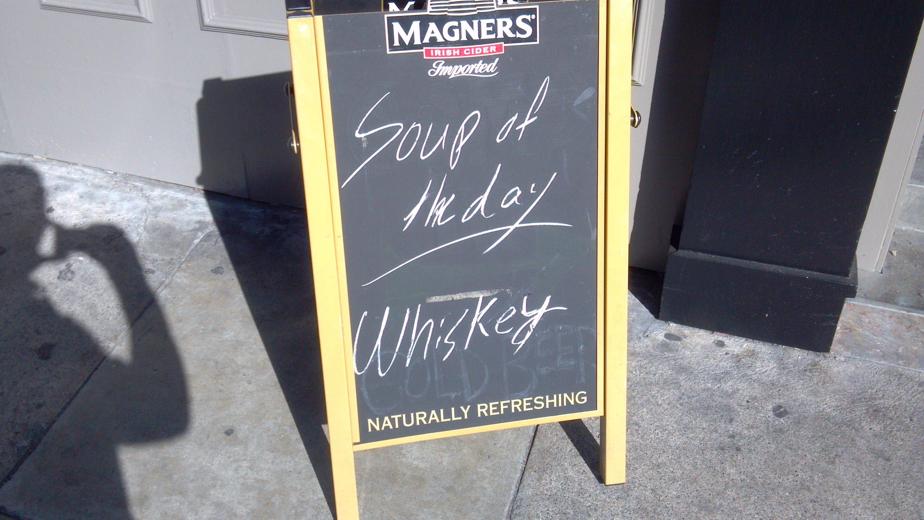 MAGNERS
IRISH CIDER
Imported
Soup of
the day
Whiskey
COLD BEER
NATURALLY REFRESHING